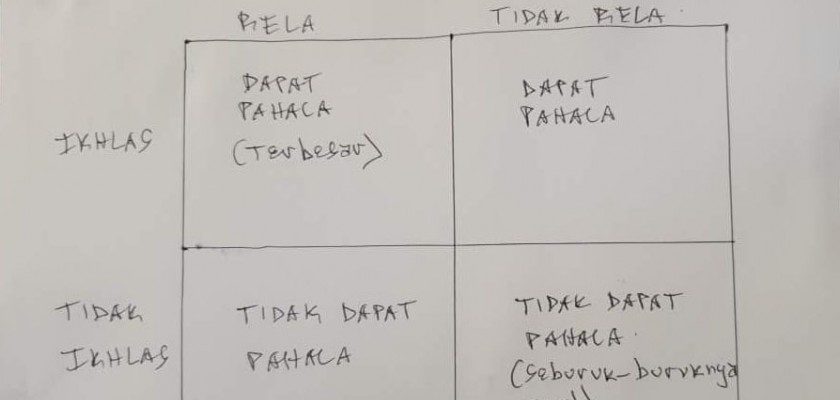 RELA TIDAK RELA
IKHLAS
DAPAT
PAHALA
(Terbesar)
DAPAT
PAHALA
TIDAK
IKHLAS
TIDAK DAPAT
PAHALA
TIDAK DAPAT
PAHALA
(Seburuk-buruknya